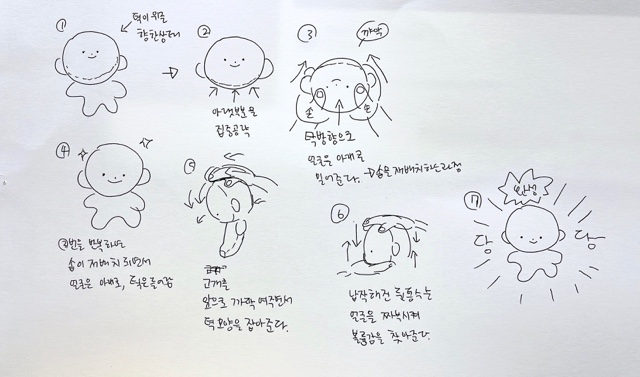 ①
턱이 위를
향한상태
②
아랫부분을
집중공략
③
꺄악
손
손
턱방향으로
얼굴을 아래로
밀어준다. → 솜을 재배치하는과정
④
③번을 반복하면
솜이 재배치 되면서
얼굴은 아래로, 턱은 들어감
⑤
고개를
앞으로 까딱여주면서
턱모양을 잡아준다.
⑥
납작해진 뒤통수는
얼굴을 찌부시켜
볼륨감을 찾아준다
⑦
완성
당
당